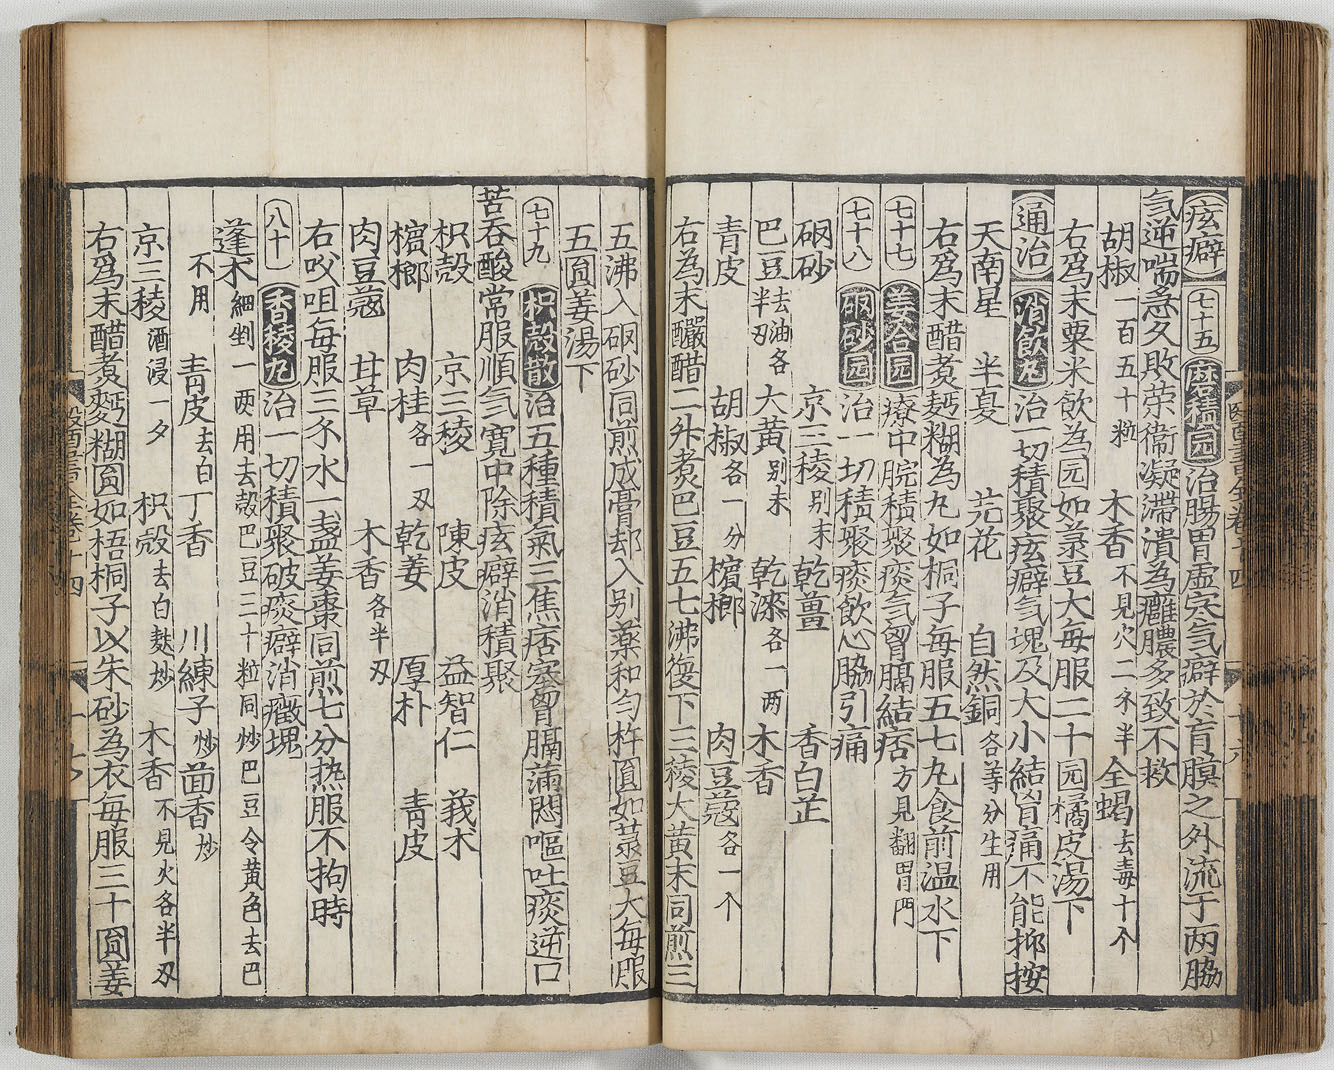 痃癖 七十五 磨積园 治腸胃虛穴気癖於肓膜之外流于两脇
気逆喘急久敗荣衛凝滯潰為癰膿多致不救
胡椒一百五十粒 木香不見火二ネ半 全蝎去毒十个
右爲末粟米飲為园如菉豆大每服二十园橘皮湯下
通治 消飲丸 治一切積聚痃癖気塊及大小結胷痛不能抑按
天南星 半夏 芫花 自然銅各等分生用
右爲末醋煑麪糊為丸如桐子每服五七丸食前温水下
七十七 姜合园 療中脘積聚痰気胷膈結痞方見翻胃門
七十八 硇砂园 治一切積聚痰飲心脇引痛
硇砂 京三稜别末 乾薑 香白芷
巴豆去油各半刄 大黄别末 乾漆各一两 木香
青皮 胡椒各一分 檳榔 肉豆蔻各一个
右為末釅醋二升煑巴豆五七沸後下三稜大黄末同煎三
五沸入硇砂同煎成膏却入别藥和匀杵圓如菉豆大每服
五圎姜湯下
七十九 枳殼散 治五種積氣三焦痞塞胷膈滿悶嘔吐痰逆口
苦吞酸常服順気寛中除痃癖消積聚
枳殼 京三稜 陳皮 益智仁 莪朮
檳榔 肉桂各一刄 乾姜 厚朴 青皮
肉豆蔻 甘草 木香各半刄
右㕮咀每服三ネ水一盞姜棗同煎七分热服不拘時
八十 香稜丸 治一切積聚破痰癖消癥塊
蓬木細剉一两用去殼巴豆二十粒同炒巴豆令黄色去巴
不用 青皮去白 丁香 川練子炒 茴香炒
京三稜酒浸一夕 枳殼去白麩炒 木香不見火各半刄
右爲末醋煑麪糊圎如梧桐子以朱砂為衣每服三十圎姜